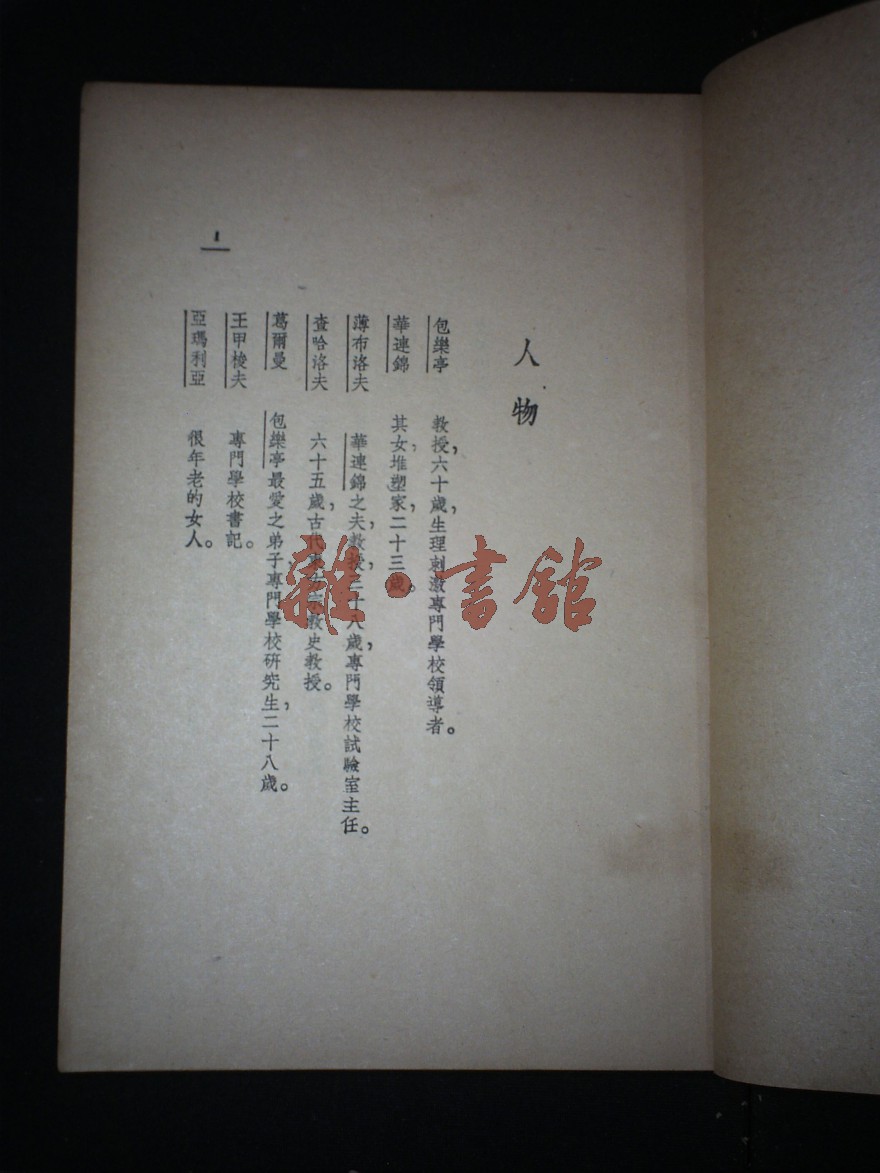 人物
包樂亭 教授，六十歲，生理刺激專門學校領導者。
華連錦 其女，堆塑家，二十三歲。
薄布洛夫 華連錦之夫，教授，三十八歲，專門學校試驗室主任。
查哈洛夫 六十五歲，古代東方宗教史教授。
葛爾曼 包樂亭最愛之弟子，專門學校研究生，二十八歲。
王甲梭夫 專門學校書記。
亞瑪利亞 很年老的女人。
1
雜·書館